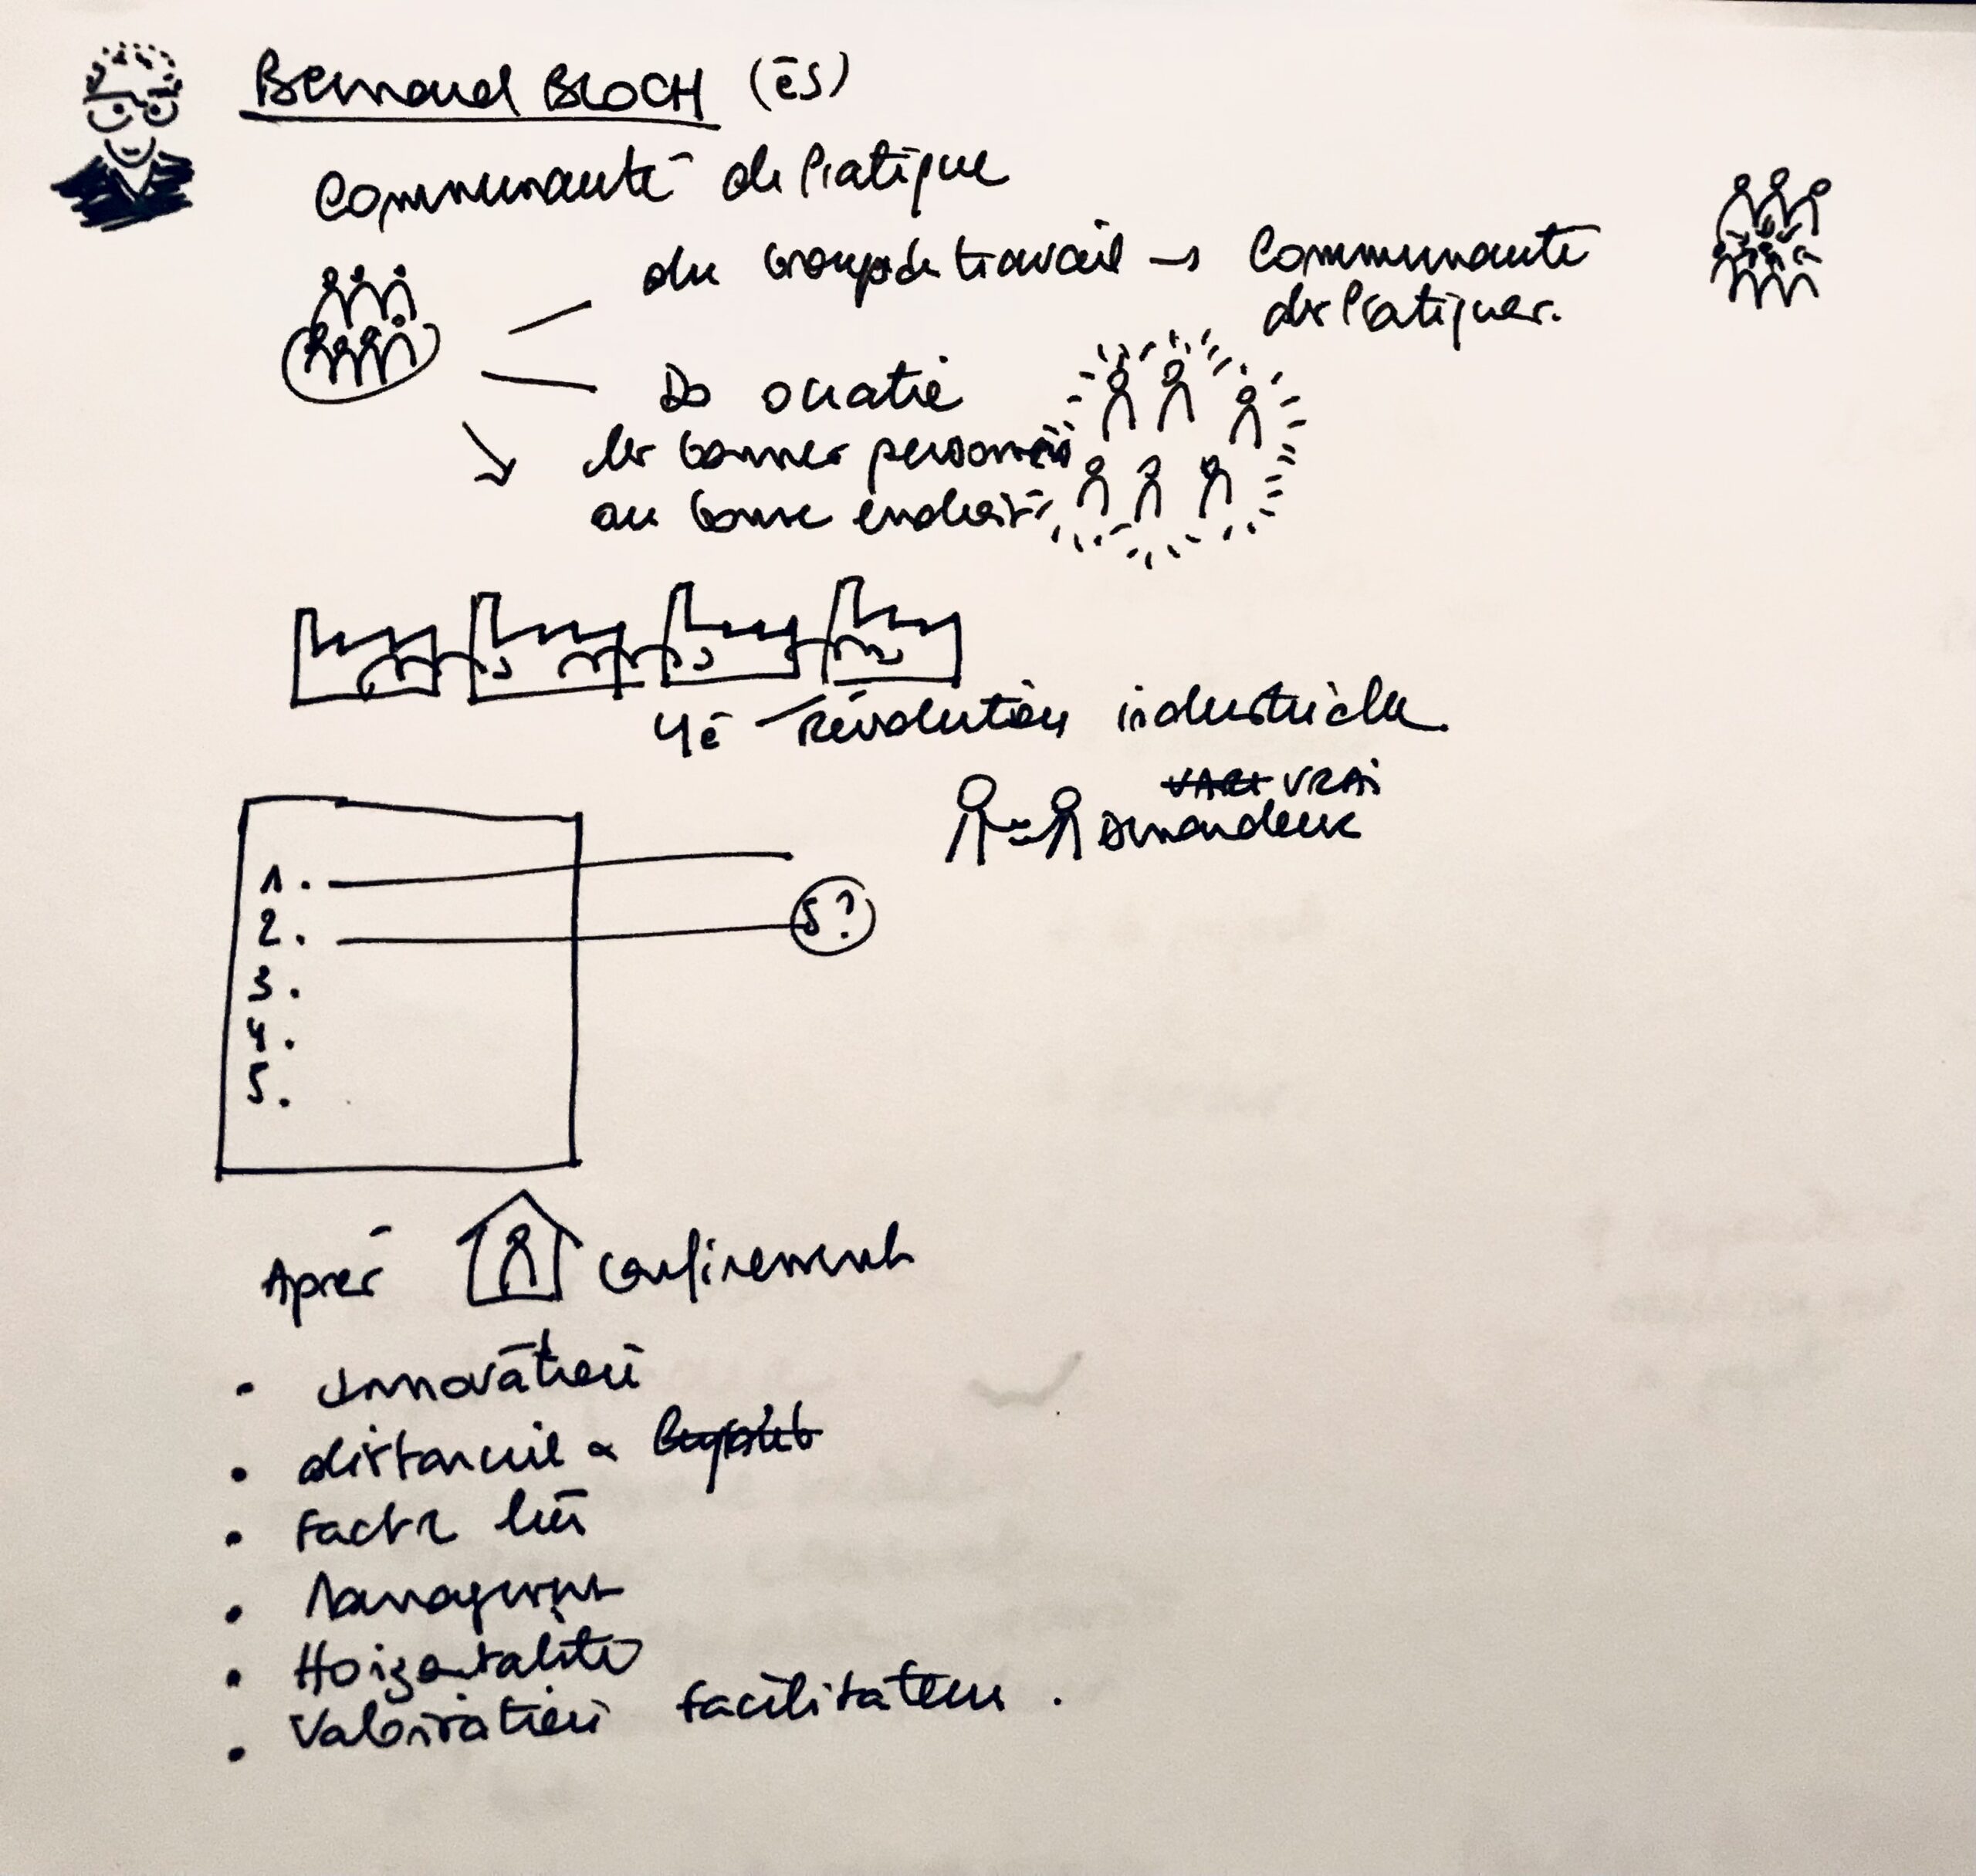 Bernard BLOCH (ēS)
Communauté de Pratique
du Groupe de travail → Communauté
des Pratiques.
les bonnes personnes
au bonne endroit
4è révolution industrielle
VRAI
5?
1.
2.
3.
4.
5.
Après confinement
• Innovation
• distanciel &
• Facte
• Management
• Hoizontalité
• Valorisation facilitateur.